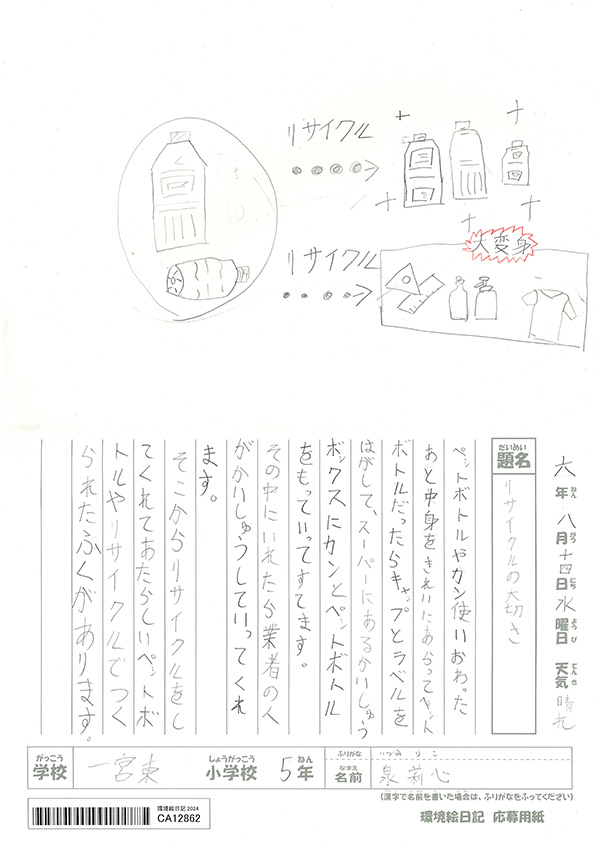 リサイクル
リサイクル
大変身
六年八月十四日水曜日 天気晴れ
ねん がつ にち ようび てんき
だいめい
題名 リサイクルの大切さ
ペットボトルやカン使いおわった
あと中身をきれいにあらってペット
ボトルだったらキャップとラベルを
はがして、スーパーにあるかいしゅう
ボックスにカンとペットボトル
をもっていってすてます。
その中にいれたら業者の人
がかいしゅうしていってくれ
ます。
そこからリサイクルをし
てくれてあたらしいペットボ
トルやリサイクルでつく
られたふくがあります。
がっこう しょうがっこう ねん
学校 一宮東 小学校 5年
ふりがな いづみ りこ
なまえ
名前 泉莉心
(漢字で名前を書いた場合は、ふりがなをふってください)
環境絵日記2024
CA12862
環境絵日記 応募用紙